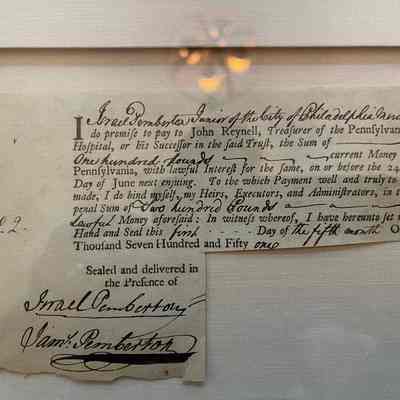 I Israel Pemberton Junior of the City of Philadelphia
do promise to pay to John Reynell, Treasurer of the Pennsylva
Hospital, or his Successor in the said Trust, the Sum of
One hundred Pounds current Money
Pennsylvania, with lawful Interest for the same, on or before the 24
Day of June next ensuing. To the which Payment well and truly to
made, I do bind myself, my Heirs, Executors, and Administrators, in t
penal Sum of Two hundred Pounds
lawful Money aforesaid: In witness whereof, I have hereunto set
Hand and Seal this first Day of the fifth month O
Thousand Seven Hundred and Fifty one
2.
Sealed and delivered in
the Presence of
Israel Pemberton
Jams. Pemberton